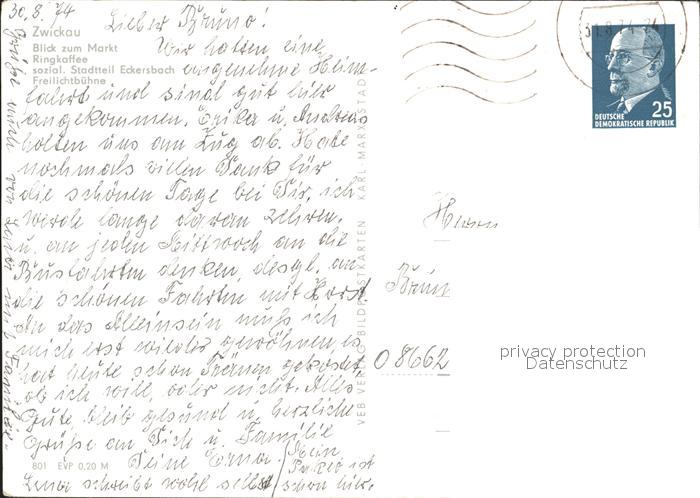 30.8.74
Lieber Bruno!
Zwickau
Blick zum Markt
Ringkaffee
sozial. Stadtteil Eckersbach
Freilichtbühne
Wir hatten eine
angenehme Heim-
fahrt und sind gut hier
angekommen. Erika u. Andreas
holten uns am Zug ab. Habe
nochmals vielen Dank für
die schönen Tage bei Dir, ich
werde lange daran zehren.
u. an jeden Mittwoch an die
Busfahrten denken, desgl. an
die schönen Fahrten mit Horst.
An das Alleinsein muß ich
mich erst wieder gewöhnen es
hat heute schon Tränen gekostet,
ob ich will oder nicht. Alles
Gute, bleib gesund u. herzliche
Grüße an Dich u. Familie
Deine Erna.
Lena schreibt wohl selbst
Mein
Paket ist
schon hier.
Grüße auch von u. Familie.
801 EVP 0,20 M
VEB VERLAG BILDPOSTKARTEN KARL-MARX-STADT
31.8.74
25
DEUTSCHE
DEMOKRATISCHE REPUBLIK
Herrn
Brun
08662
privacy protection
Datenschutz